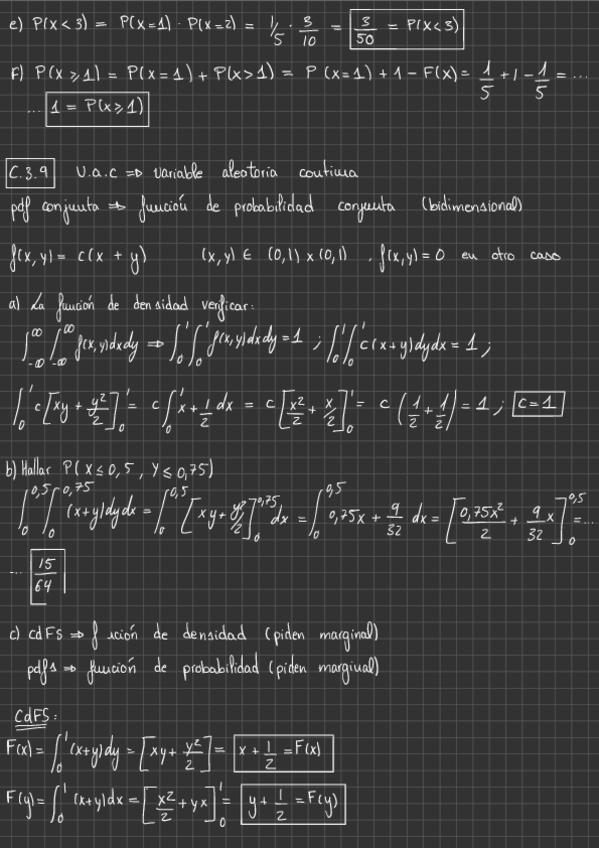 e) P(x < 3) = P(x=1) · P(x=2) = 1/5 · 3/10 = 3/50 = P(x<3)
F) P(x ⩾ 1) = P(x = 1) + P(x > 1) = P (x = 1) + 1 - F(x) = 1/5 + 1 - 1/5 = ...
... 1 = P(x ⩾ 1)
C.3.9 V.a.c ⇒ variable aleatoria continua
pdf conjunta ⇒ función de probabilidad conjunta (bidimensional)
f(x,y) = c(x + y) (x,y) ∈ (0,1) x (0,1) . f(x,y) = 0 en otro caso
a) La función de densidad verificar:
∫_{-∞}^{∞} ∫_{-∞}^{∞} f(x,y)dxdy ⇒ ∫_0^1 ∫_0^1 f(x,y)dxdy = 1 ; ∫_0^1 ∫_0^1 c(x+y)dydx = 1 ;
∫_0^1 c[xy + y²/2]_0^1 = c ∫_0^1 x + 1/2 dx = c [x²/2 + x/2]_0^1 = c (1/2 + 1/2) = 1 ; c = 1
b) Hallar P(X ≤ 0,5 , Y ≤ 0,75)
∫_0^{0,5} ∫_0^{0,75} (x+y)dydx = ∫_0^{0,5} [xy + y²/2]_0^{0,75} dx = ∫_0^{0,5} 0,75x + 9/32 dx = [0,75x²/2 + 9/32 x]_0^{0,5} = ...
... 15/64
c) cdFs ⇒ f unción de densidad (piden marginal)
pdfs ⇒ función de probabilidad (piden marginal)
CdFS:
F(x) = ∫_0^1 (x+y)dy = [xy + y²/2] = x + 1/2 = F(x)
F(y) = ∫_0^1 (x+y)dx = [x²/2 + yx]_0^1 = y + 1/2 = F(y)